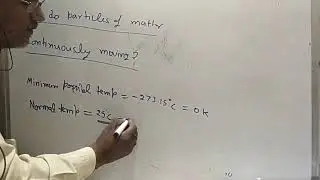 do particles of matter
continuously moving?
Minimum possible temp = -273.15°C = 0K
Normal temp = 25°C =